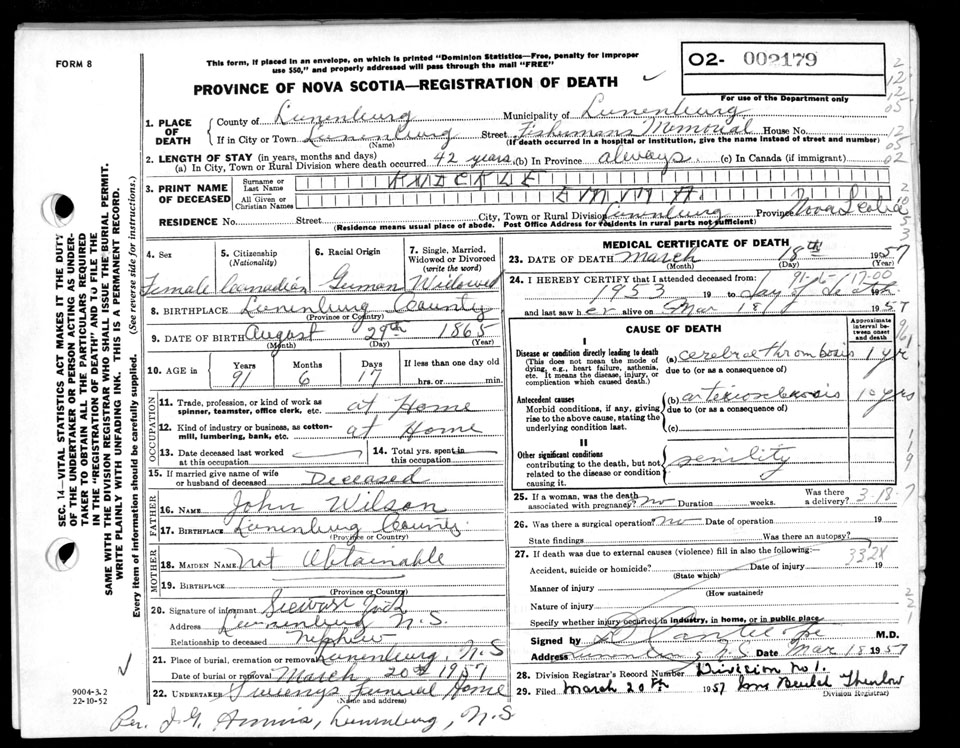 FORM 8
This form, if placed in an envelope, on which is printed "Dominion Statistics—Free, penalty for improper
use $50," and properly addressed will pass through the mail "FREE"
O2- 002179
For use of the Department only
PROVINCE OF NOVA SCOTIA—REGISTRATION OF DEATH
1. PLACE OF DEATH
County of Lunenburg Municipality of Lunenburg
If in City or Town Lunenburg Street Fishermans Memorial House No.
(Name) (If death occurred in a hospital or institution, give the name instead of street and number)
2. LENGTH OF STAY (in years, months and days)
(a) In City, Town or Rural Division where death occurred 42 years (b) In Province always (c) In Canada (if immigrant)
3. PRINT NAME OF DECEASED
Surname or Last Name KNICKLE
All Given or Christian Names EMMA
RESIDENCE No. Street City, Town or Rural Division Lunenburg Province Nova Scotia
(Residence means usual place of abode. Post Office Address for residents in rural parts not sufficient)
4. Sex Female
5. Citizenship (Nationality) Canadian
6. Racial Origin German
7. Single, Married, Widowed or Divorced (write the word) Widowed
8. BIRTHPLACE Lunenburg County
(Province or Country)
9. DATE OF BIRTH August 29th 1865
(Month) (Day) (Year)
10. AGE in Years 91 Months 6 Days 17 If less than one day old hrs. or min.
OCCUPATION
11. Trade, profession, or kind of work as spinner, teamster, office clerk, etc. at Home
12. Kind of industry or business, as cotton-mill, lumbering, bank, etc. at Home
13. Date deceased last worked at this occupation
14. Total yrs. spent in this occupation
15. If married give name of wife or husband of deceased Deceased
FATHER
16. NAME John Wilson
17. BIRTHPLACE Lunenburg County
(Province or Country)
MOTHER
18. MAIDEN NAME Not Obtainable
19. BIRTHPLACE
(Province or Country)
20. Signature of informant Stewart
Address Lunenburg N.S.
Relationship to deceased Nephew
21. Place of burial, cremation or removal Lunenburg, N.S
Date of burial or removal March 20th 1957
22. UNDERTAKER Sweenys Funeral Home
(Name and address)
Per. J.G. Lunenburg, N.S
MEDICAL CERTIFICATE OF DEATH
23. DATE OF DEATH March 18th 1957
(Month) (Day) (Year)
24. I HEREBY CERTIFY that I attended deceased from:
1953 19 to Day of Death 19
and last saw her alive on Mar 18 1957
CAUSE OF DEATH
Approximate interval between onset and death
I
Disease or condition directly leading to death
(This does not mean the mode of dying, e.g., heart failure, asthenia, etc. It means the disease, injury, or complication which caused death.)
(a) cerebral thrombosis 1 yr
due to (or as a consequence of)
Antecedent causes
Morbid conditions, if any, giving rise to the above cause, stating the underlying condition last.
(b) arteriosclerosis 10 yrs
due to (or as a consequence of)
(c)
II
Other significant conditions
contributing to the death, but not related to the disease or condition causing it.
senility
25. If a woman, was the death associated with pregnancy? no Duration weeks. Was there a delivery?
3-18-7
26. Was there a surgical operation? no Date of operation 19
State findings Was there an autopsy?
27. If death was due to external causes (violence) fill in also the following:
332X
Accident, suicide or homicide? Date of injury 19
(State which)
Manner of injury
(How sustained)
Nature of injury
Specify whether injury occurred in industry, in home, or in public place
Signed by M.D.
Address Lunenburg N.S. Date Mar 18 1957
28. Division Registrar's Record Number Division No 1.
29. Filed March 20th 1957 Mrs Beulah
(Division Registrar)
SEC. 14—VITAL STATISTICS ACT MAKES IT THE DUTY
OF THE UNDERTAKER OR PERSON ACTING AS UNDER-
TAKER TO OBTAIN ALL THE PARTICULARS REQUIRED
IN THE "REGISTRATION OF DEATH" AND TO FILE THE
SAME WITH THE DIVISION REGISTRAR WHO SHALL ISSUE THE BURIAL PERMIT.
WRITE PLAINLY WITH UNFADING INK. THIS IS A PERMANENT RECORD.
Every item of information should be carefully supplied. (See reverse side for instructions.)
9004-3.2
22-10-52